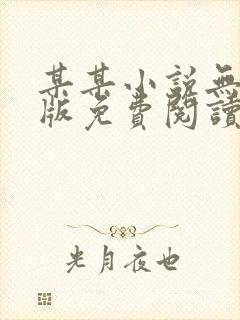 某某小説無
版免費閱讀
光月夜也